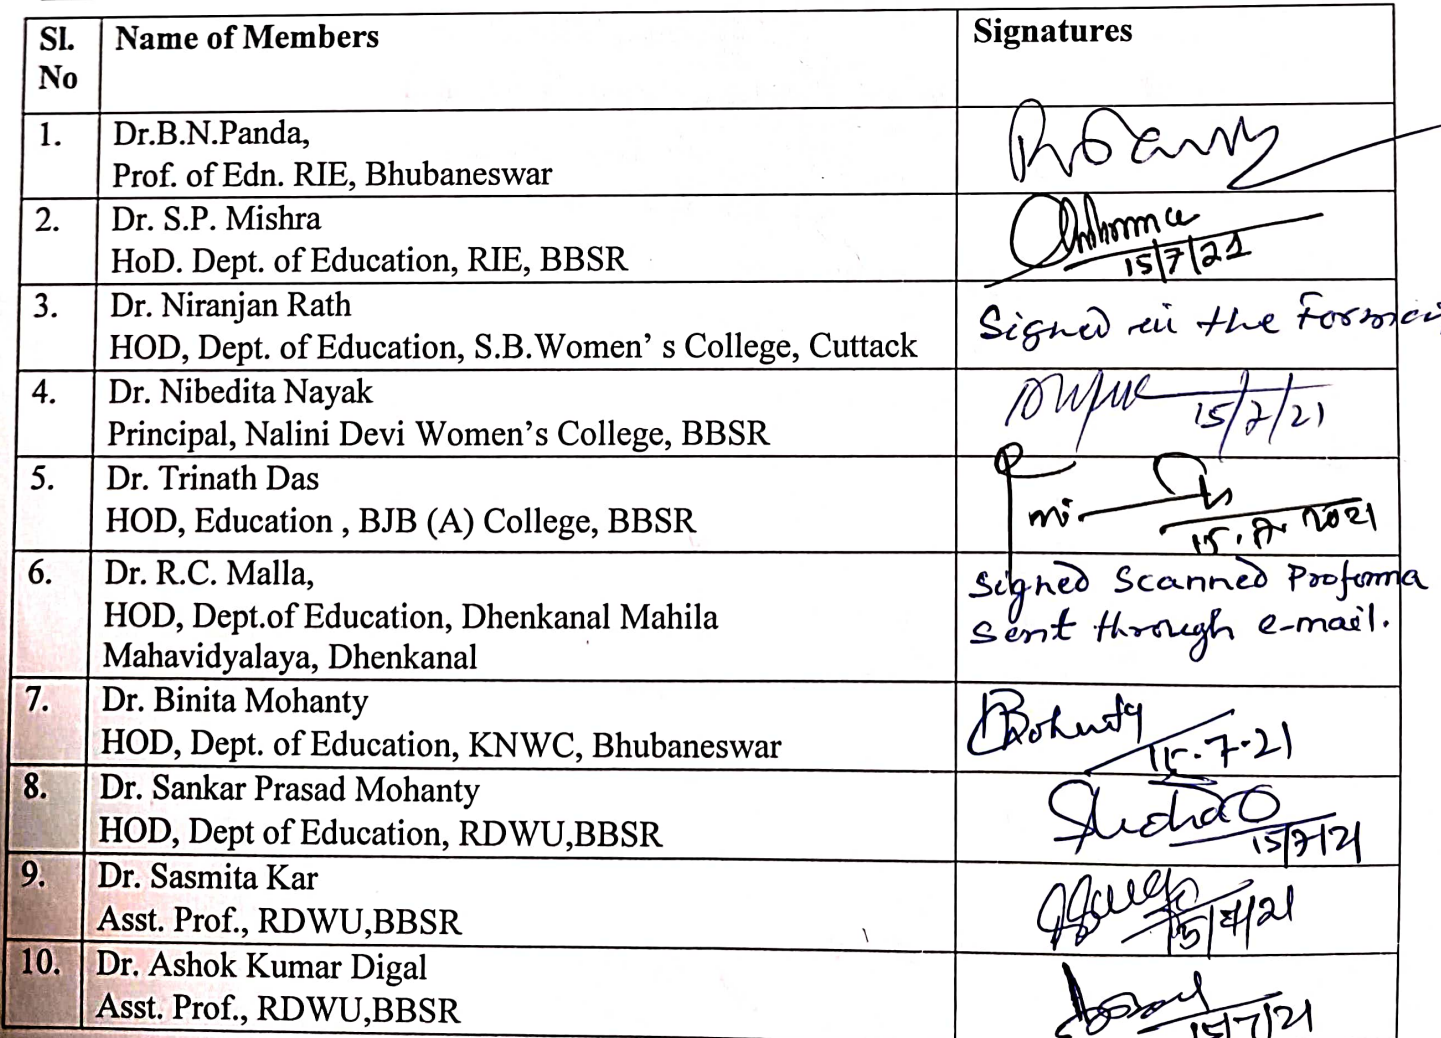 Sl. No
Name of Members
Signatures
1.
Dr.B.N.Panda,
Prof. of Edn. RIE, Bhubaneswar
2.
Dr. S.P. Mishra
HoD. Dept. of Education, RIE, BBSR
15/7/21
3.
Dr. Niranjan Rath
HOD, Dept. of Education, S.B.Women' s College, Cuttack
Signed in the
4.
Dr. Nibedita Nayak
Principal, Nalini Devi Women's College, BBSR
15/7/21
5.
Dr. Trinath Das
HOD, Education , BJB (A) College, BBSR
15.7.2021
6.
Dr. R.C. Malla,
HOD, Dept.of Education, Dhenkanal Mahila
Mahavidyalaya, Dhenkanal
Signed Scanned Proforma
Sent through e-mail.
7.
Dr. Binita Mohanty
HOD, Dept. of Education, KNWC, Bhubaneswar
15.7.21
8.
Dr. Sankar Prasad Mohanty
HOD, Dept of Education, RDWU,BBSR
15/7/21
9.
Dr. Sasmita Kar
Asst. Prof., RDWU,BBSR
10.
Dr. Ashok Kumar Digal
Asst. Prof., RDWU,BBSR
15/7/21